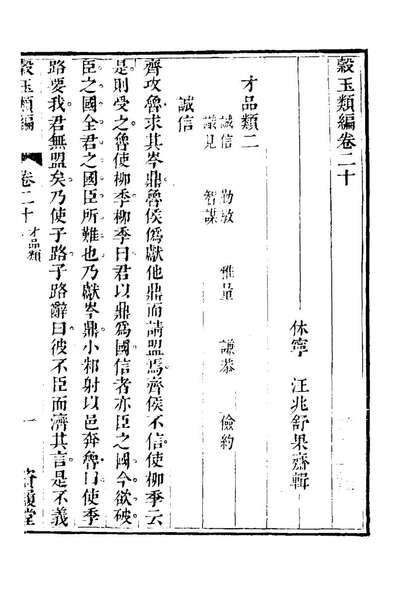 縠玉類編卷二十
休寧　汪兆舒果齋輯
才品類二
誠信　勤敏　雅量　謙恭　儉約
識見　智謀
誠信
齊攻魯求其岑鼎魯侯僞獻他鼎而請盟焉齊侯不信使柳季云
是則受之魯使柳季柳季曰君以鼎爲國信者亦臣之國今欲破
臣之國全君之國臣所難也乃獻岑鼎小邾射以邑奔魯曰使季
路要我君無盟矣乃使子路子路辭曰彼不臣而濟其言是不義
縠玉類編
卷二十　才品類
一
資履堂